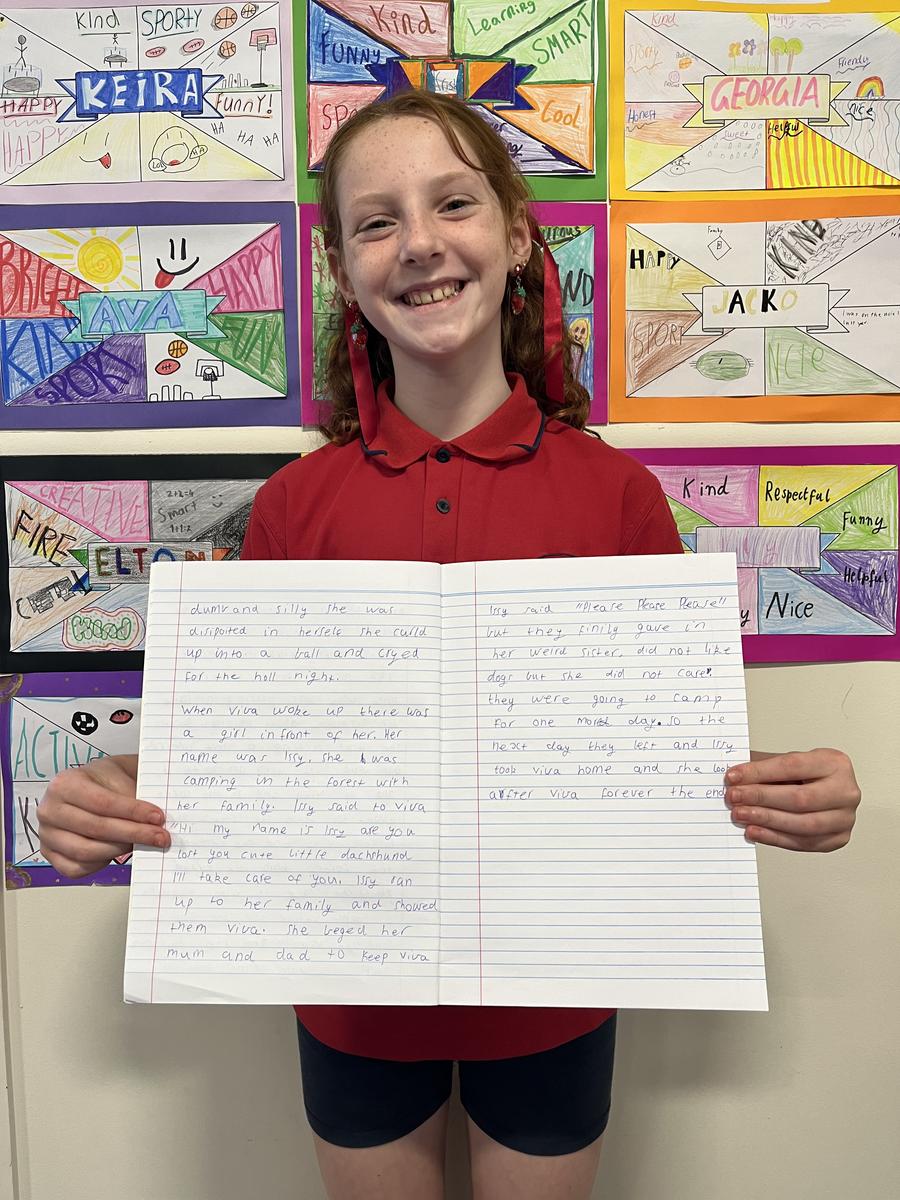 Kind
SPORTY
KEIRA
HAPPY
FUNNY!
HAPPY
LOL
HA
HA HA HA
Kind
Learning
FUNNY
SMART
Cool
Kind
Sporty
Friendly
GEORGIA
Honest
Nice
Sweet
Helpful
BRIGHT
HAPPY
AVA
KIND
FUN
SPORT
ND
HAPPY
Family
KIND
JACKO
SPORT
last year.
CREATIVE
2+2=4
Smart
1+1=2
FIRE
ELTON
Kind
Kind
Respectful
Funny
Helpful
Nice
ACTIV
dum and silly she was
disipoited in herself she curld
up into a ball and cryed
for the holl night.
When viva woke up there was
a girl infront of her. Her
name was Issy, she was
camping in the forest with
her family. Issy said to viva
"Hi my name is Issy are you
lost you cute little dachshund
I'll take care of you. Issy ran
up to her family and showed
them viva. She beged her
mum and dad to keep viva
Issy said "Please Please Please"
but they finily gave in
her weird sister, did not like
dogs but she did not care!
they were going to camp
for one more day. so the
next day they left and Issy
took viva home and she look
after viva forever the end